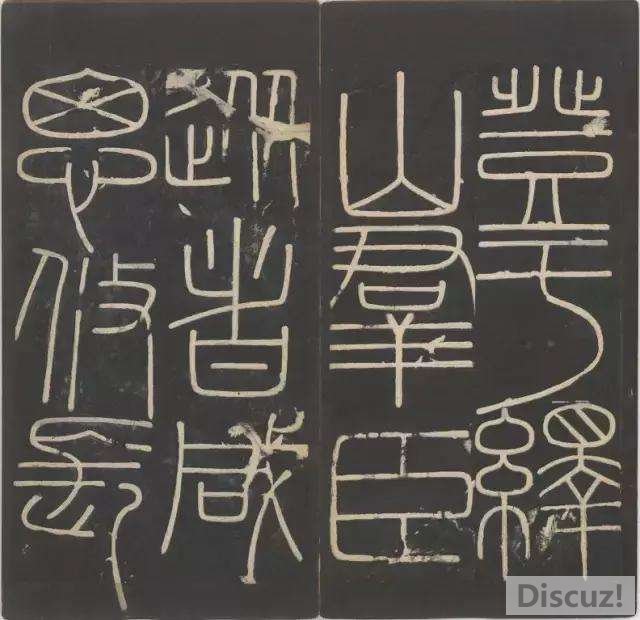 登于繹
山羣臣
從者咸
思攸長
Discuz!